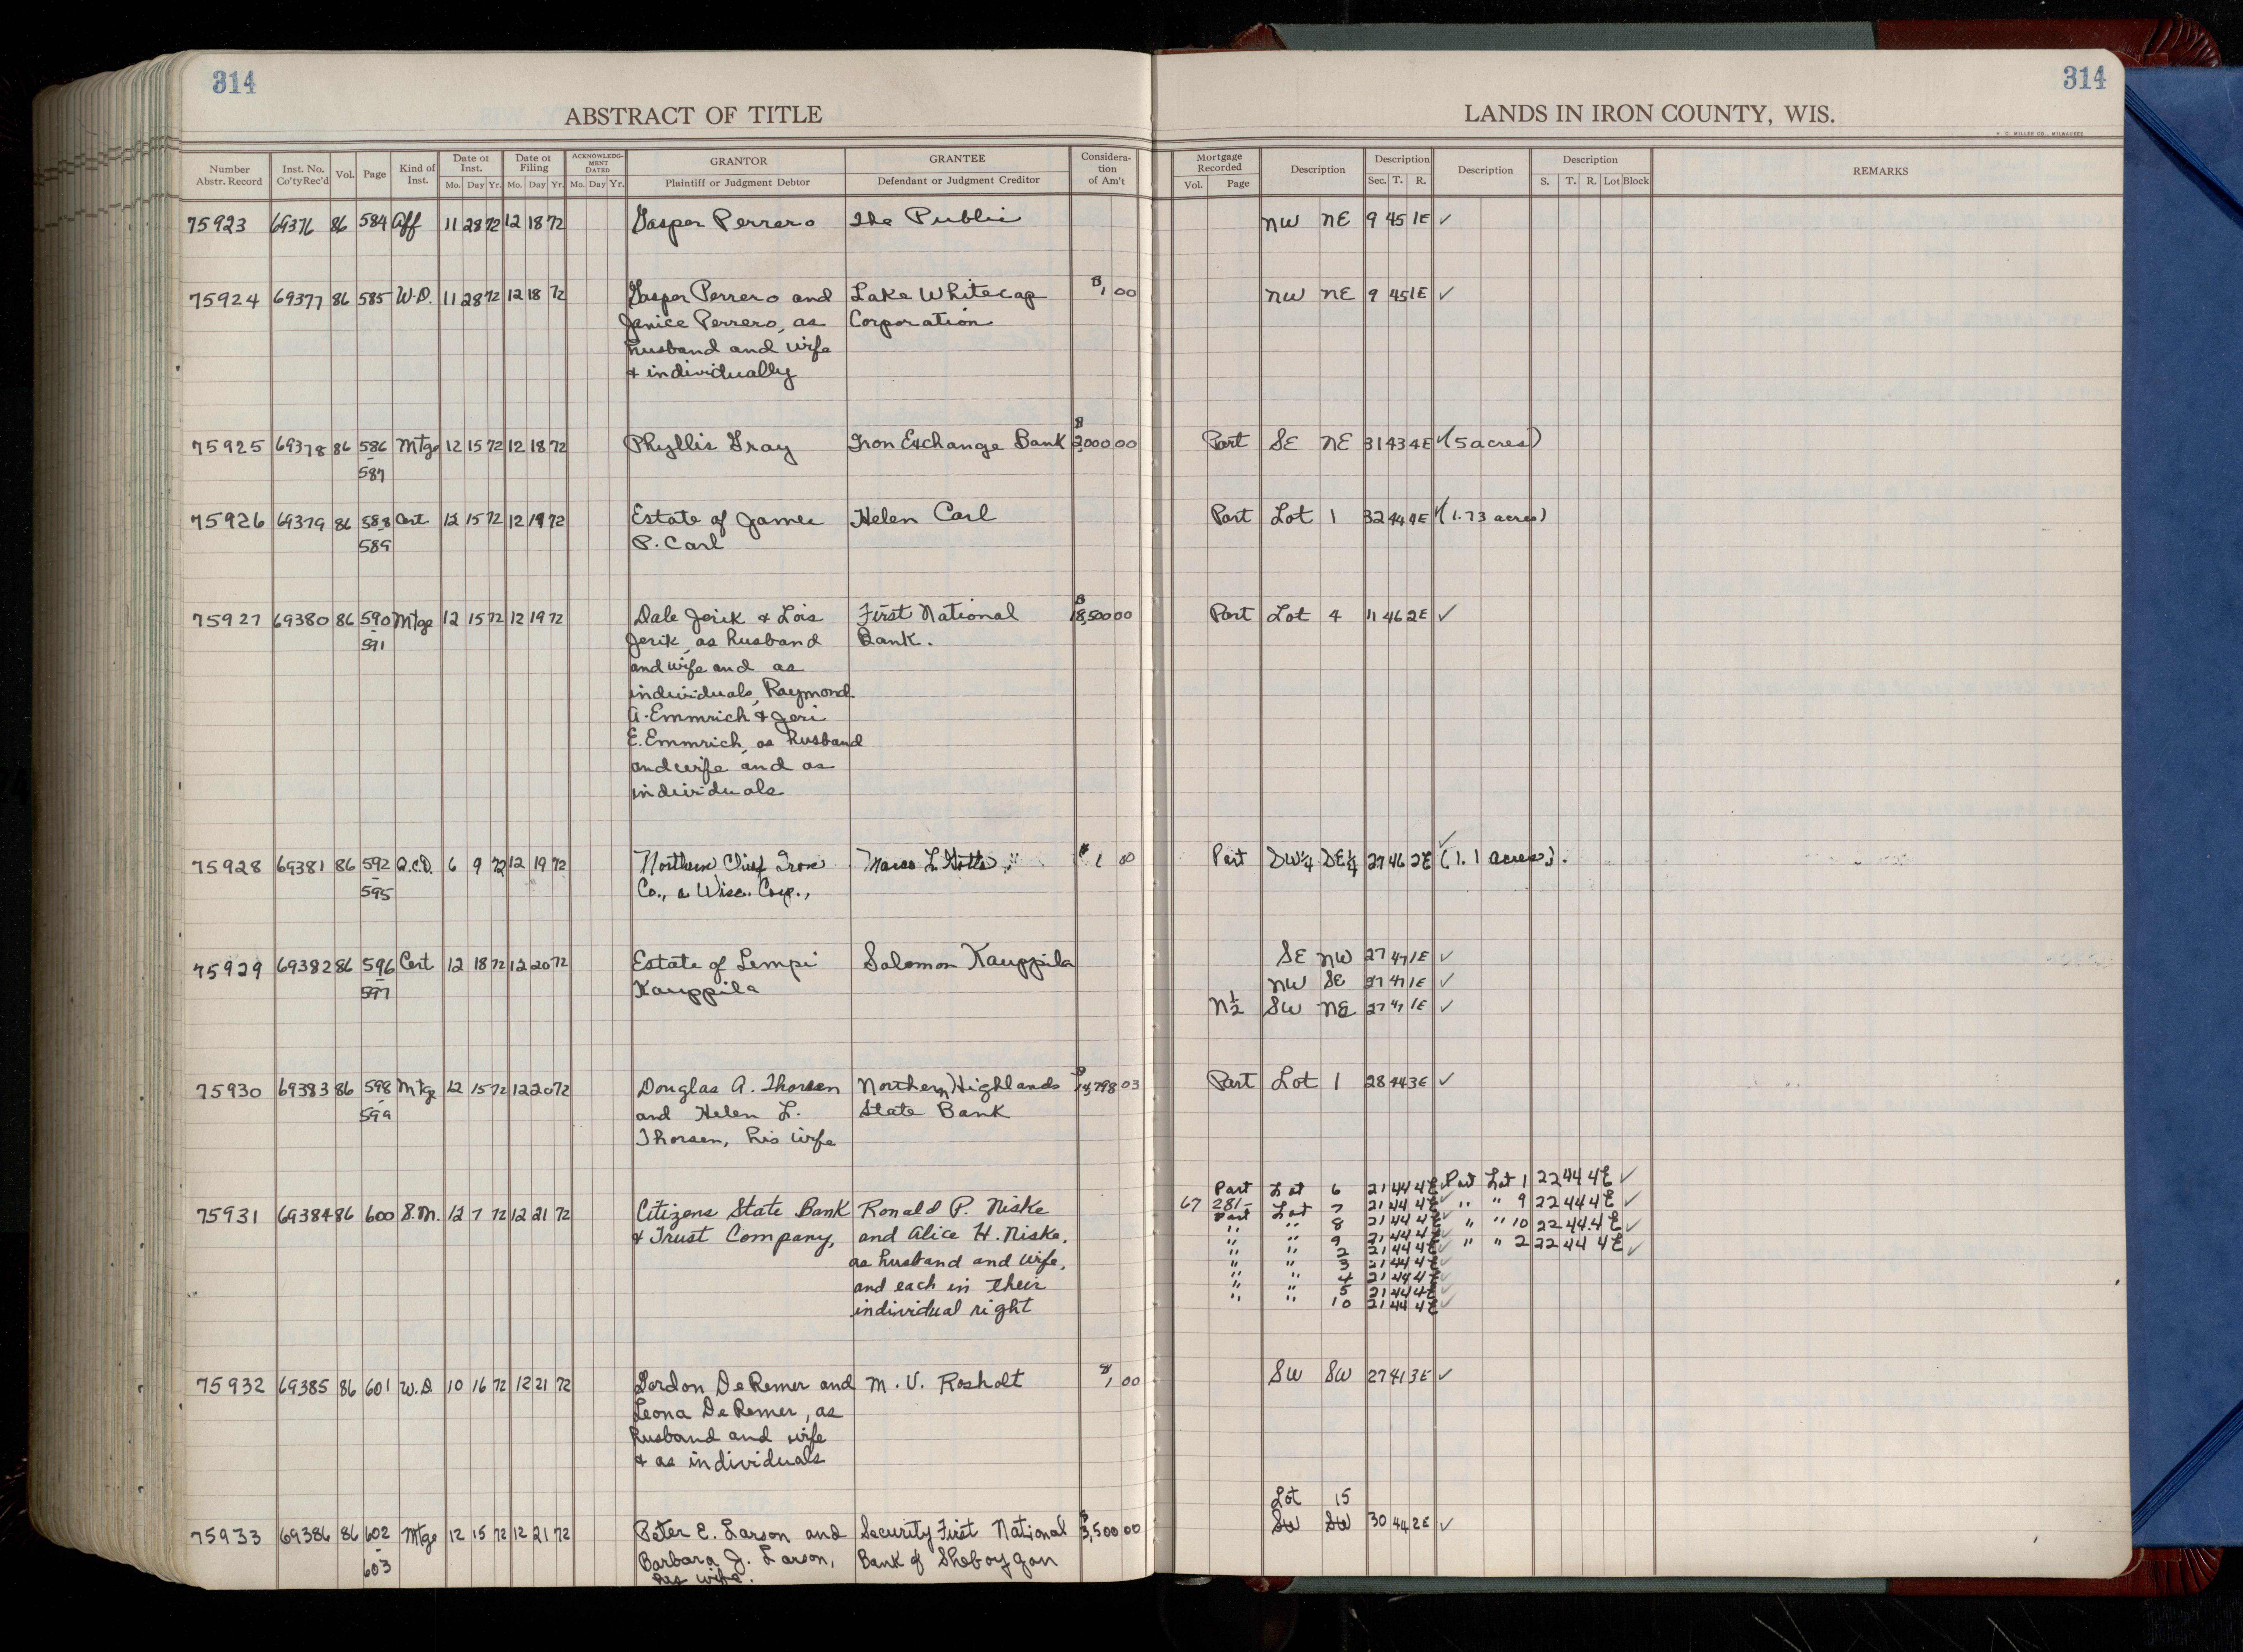 314
314
ABSTRACT OF TITLE
LANDS IN IRON COUNTY, WIS.
H. C. MILLER CO., MILWAUKEE
Number Abstr. Record Inst. No. Co'ty Rec'd Vol. Page Kind of Inst. Date of Inst. Mo. Day Yr. Date of Filing Mo. Day Yr. ACKNOWLEDGMENT DATED Mo. Day Yr. GRANTOR Plaintiff or Judgment Debtor GRANTEE Defendant or Judgment Creditor Consideration of Am't Mortgage Recorded Vol. Page Description Description Sec. T. R. Description Description S. T. R. Lot Block REMARKS
75923 69376 86 584 Aff 11 28 72 12 18 72 Gasper Perrero The Public NW NE 9 45 1E ✓
75924 69377 86 585 W.D. 11 28 72 12 18 72 Gasper Perrero and Lake Whitecap $1,00 NW NE 9 45 1E ✓
Janice Perrero, as Corporation
husband and wife
& individually
75925 69378 86 586 Mtge 12 15 72 12 18 72 Phyllis Gray Iron Exchange Bank $2,000 00 Part SE NE 31 43 4E ✓ (5 acres)
-
587
75926 69379 86 588 Cert 12 15 72 12 19 72 Estate of James Helen Carl Part Lot 1 32 44 4E ✓ (1.73 acres)
-
589 P. Carl
75927 69380 86 590 Mtge 12 15 72 12 19 72 Dale Jerik & Lois First National $18,500 00 Part Lot 4 11 46 2E ✓
-
591 Jerik, as husband Bank.
and wife and as
individuals, Raymond
A. Emmrich & Jeri
E. Emmrich, as husband
and wife and as
individuals
75928 69381 86 592 Q.C.D. 6 9 72 12 19 72 Northern Chief Iron Marco L. $1 00 Part SW¼ SE¼ 27 46 2E ✓ (1.1 acres).
-
595 Co., a Wisc. Corp.,
75929 69382 86 596 Cert 12 18 72 12 20 72 Estate of Lempi Salomon Kauppila SE NW 27 47 1E ✓
-
597 Kauppila NW SE 27 47 1E ✓
N½ SW NE 27 47 1E ✓
75930 69383 86 598 Mtg 12 15 72 12 20 72 Douglas A. Thorsen Northern Highlands 03 Part Lot 1 28 44 3E ✓
-
599 and Helen L. State Bank
Thorsen, his wife
Part Lot 6 21 44 4E Part Lot 1 22 44 4E ✓
75931 69384 86 600 S.M. 12 7 72 12 21 72 Citizens State Bank Ronald P. Niske 67 281- Part Lot 7 21 44 4E ✓ " " 9 22 44 4E ✓
& Trust Company, and Alice H. Niske, " " 8 21 44 4E ✓ " " 10 22 44 4E ✓
" " 9 21 44 4E ✓ " " 2 22 44 4E ✓
as husband and wife, " " 2 21 44 4E ✓
" " 3 21 44 4E ✓
and each in their " " 4 21 44 4E ✓
" " 5 21 44 4E ✓
individual right " " 10 21 44 4E ✓
75932 69385 86 601 W.D. 10 16 72 12 21 72 Gordon DeRemer and M. V. Rosholt $1,00 SW SW 27 41 3E ✓
Leona DeRemer, as
husband and wife
& as individuals
Lot 15
75933 69386 86 602 Mtge 12 15 72 12 21 72 Peter E. Larson and Security First National $3,500 00 SW SW 30 44 2E ✓
-
603 Barbara J. Larson, Bank of Sheboygan
his wife.